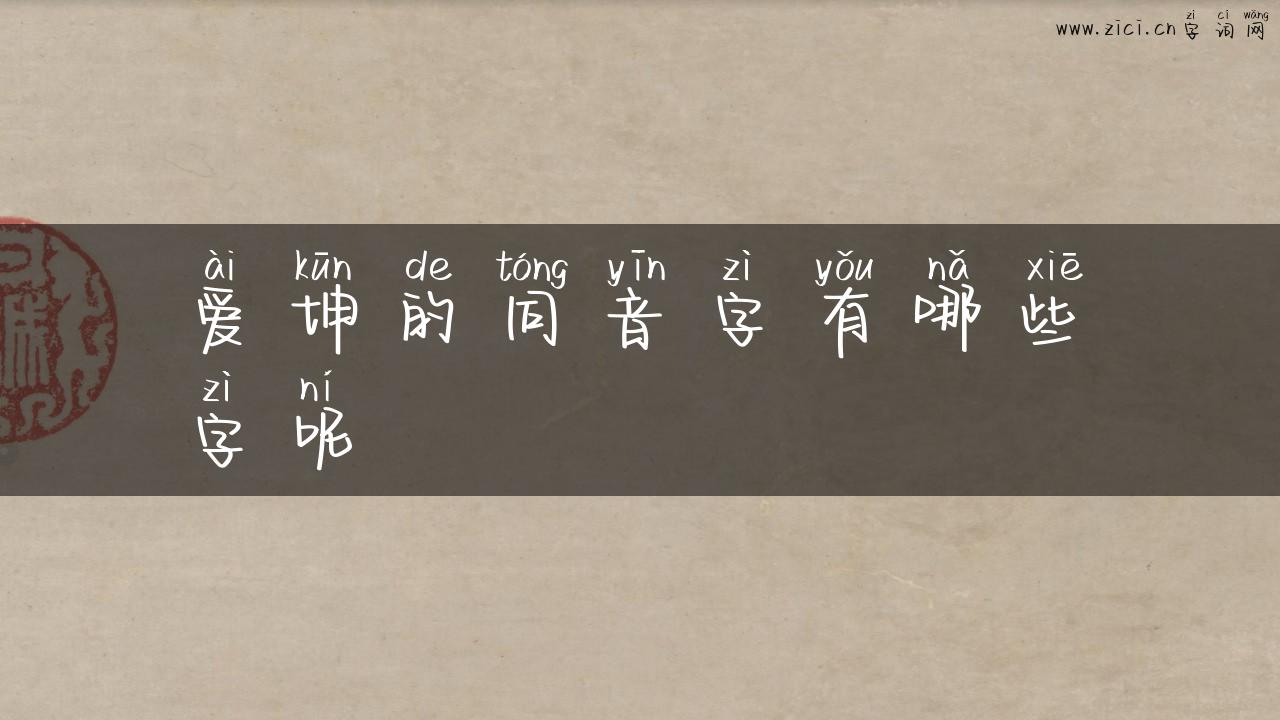 zì cí wǎng
www.zici.cn字词网
ài kūn de tóng yīn zì yǒu nǎ xiē
爱坤的同音字有哪些
zì ní
字呢